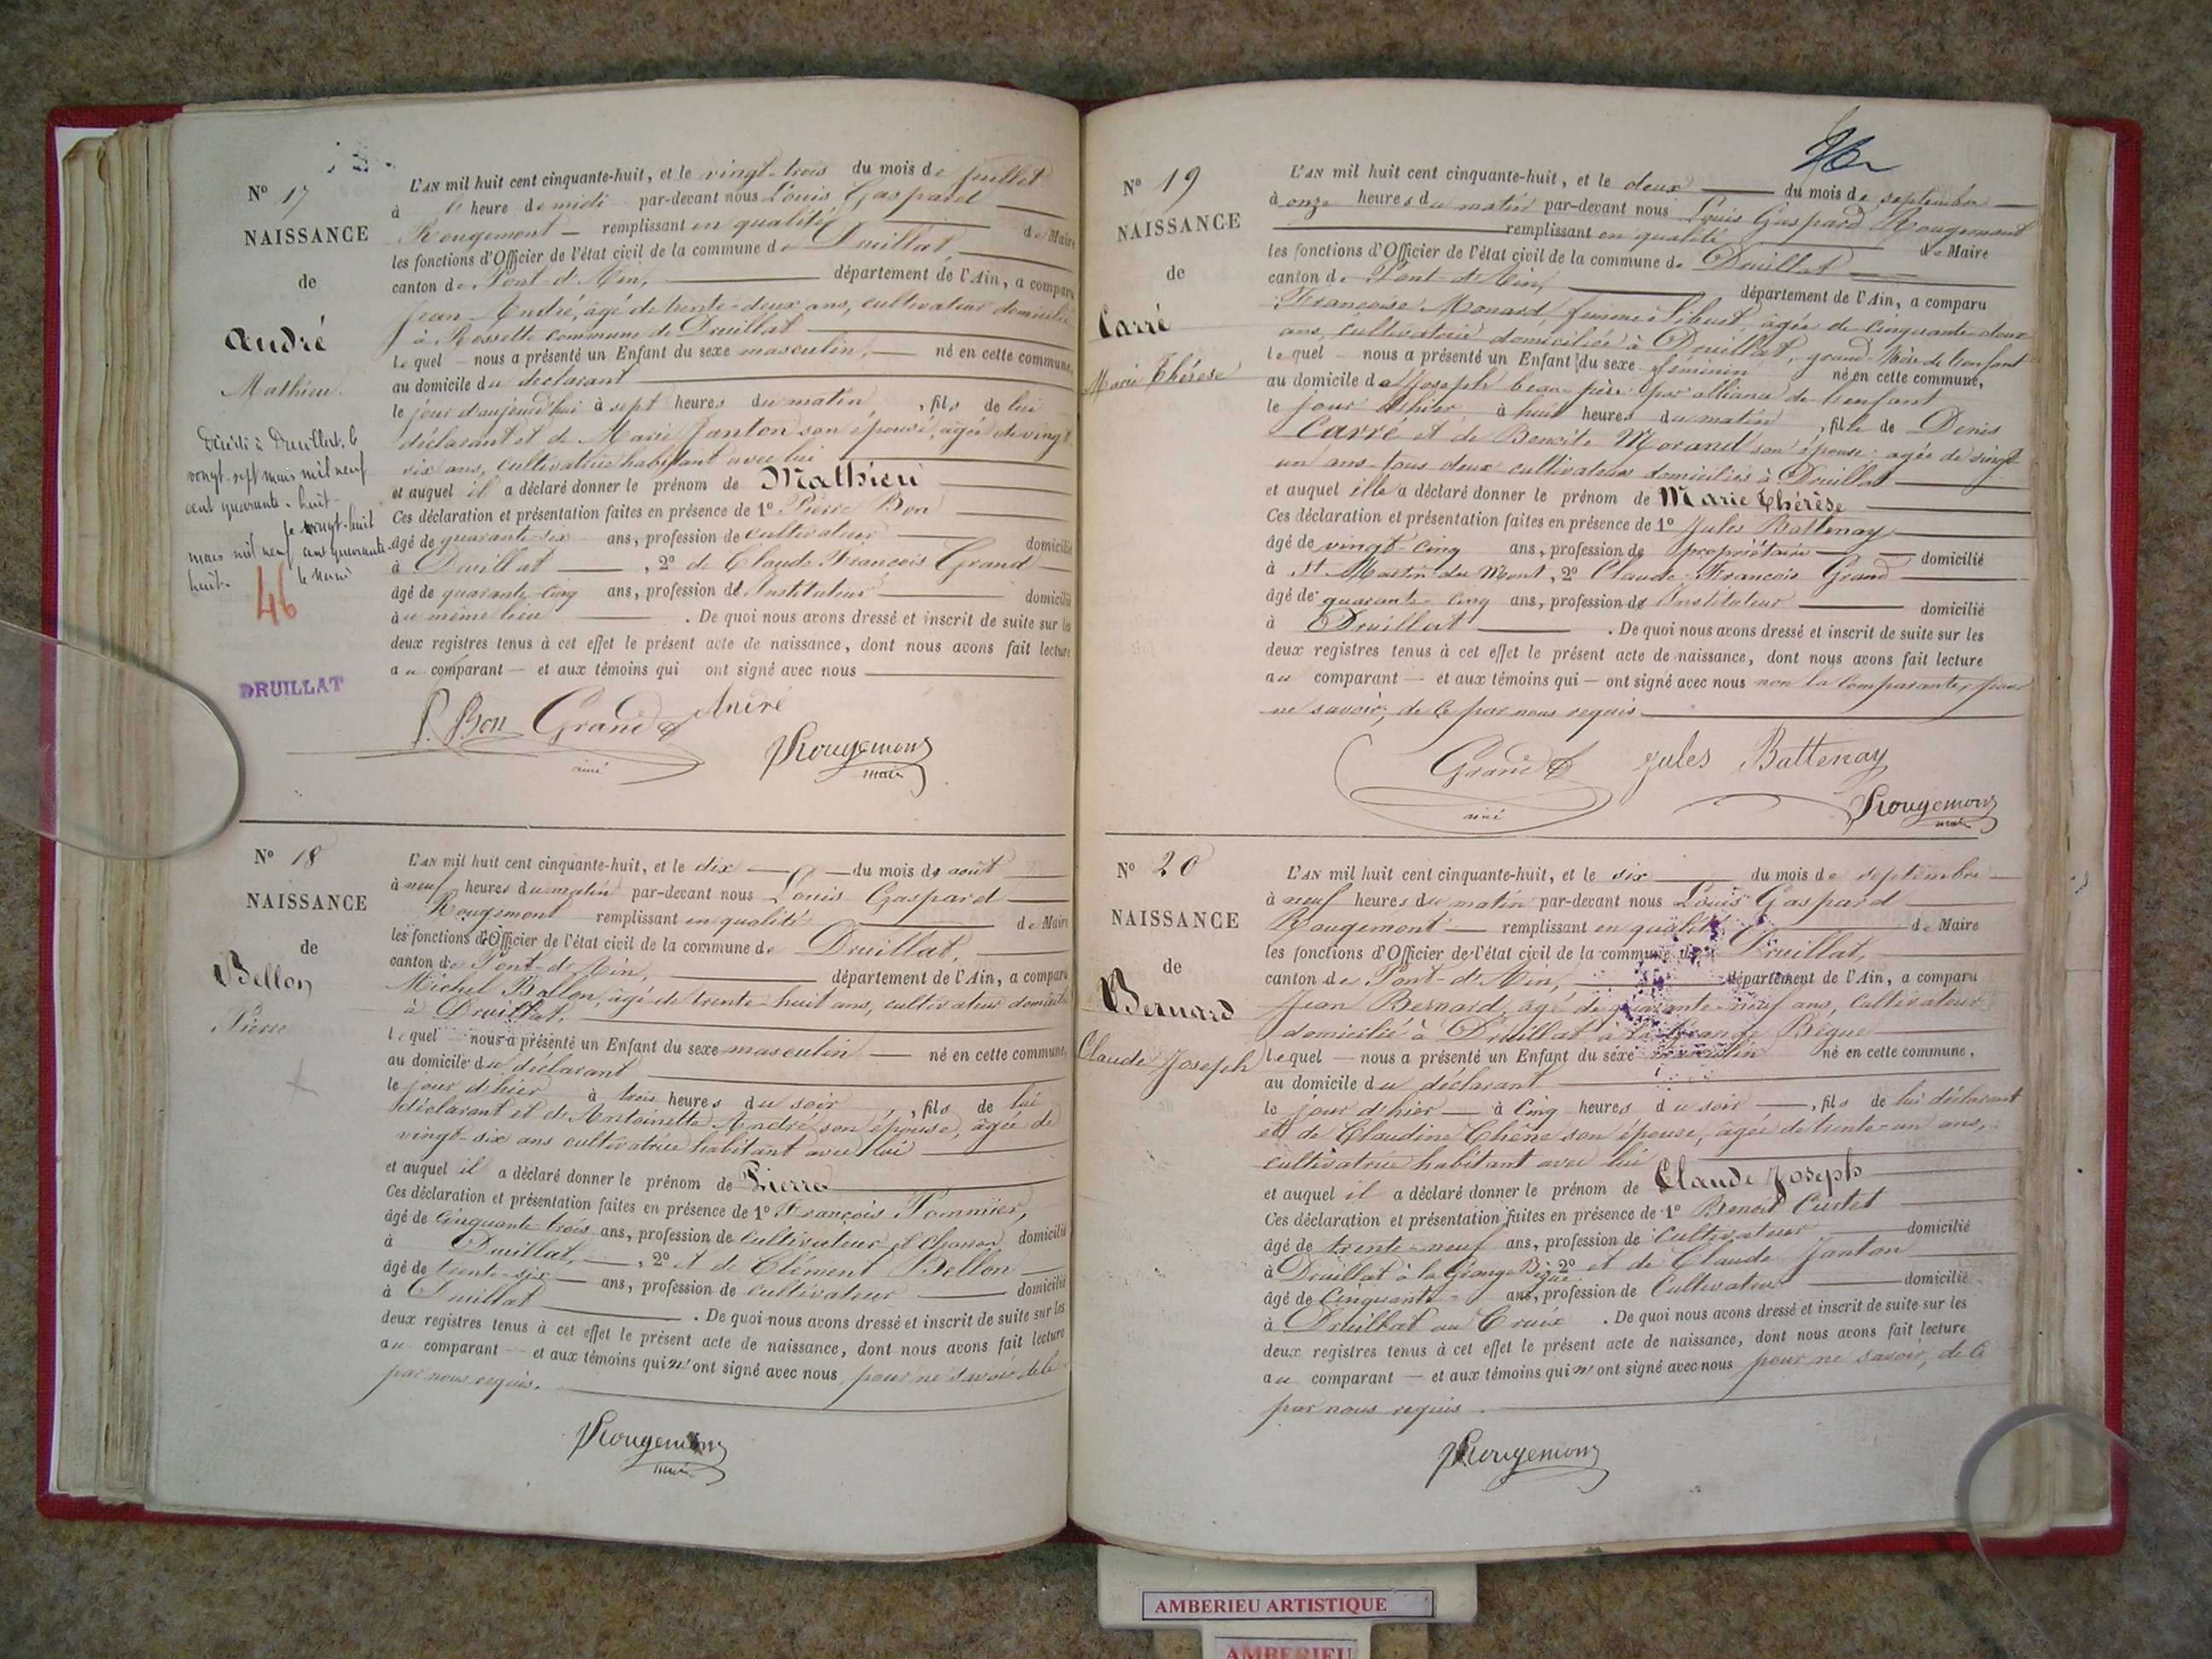 N° 17
NAISSANCE
de
André
Mathieu
Décédé à Druillat, le
vingt-sept mars mil neuf
cent quarante-huit
le vingt-huit
mars mil neuf cent quarante
huit.
46
DRUILLAT
L'AN mil huit cent cinquante-huit, et le vingt-trois du mois de juillet
à heure de midi par-devant nous Louis Gaspard
Rougemont remplissant en qualité de Maire
les fonctions d'Officier de l'état civil de la commune de Druillat,
canton de Pont-d'Ain, département de l'Ain, a comparu
Jean André, âgé de trente-deux ans, cultivateur domicilié
à Rossette commune de Druillat
lequel nous a présenté un Enfant du sexe masculin, né en cette commune,
au domicile du déclarant
le jour d'aujourd'hui à sept heures du matin, fils de lui
déclarant et de Marie Janton son épouse, âgée de vingt
six ans, cultivatrice habitant avec lui
et auquel il a déclaré donner le prénom de Mathieu
Ces déclaration et présentation faites en présence de 1° Pierre Bon
âgé de quarante-six ans, profession de cultivateur domicilié
à Druillat, 2° de Claude François Grand
âgé de quarante-cinq ans, profession de Instituteur domicilié
au même lieu. De quoi nous avons dressé et inscrit de suite sur les
deux registres tenus à cet effet le présent acte de naissance, dont nous avons fait lecture
au comparant et aux témoins qui ont signé avec nous
P. Bon Grand André
Rougemont
maire
N° 18
NAISSANCE
de
Bellon
Pierre
L'AN mil huit cent cinquante-huit, et le dix du mois de août
à neuf heures du matin par-devant nous Louis Gaspard
Rougemont remplissant en qualité de Maire
les fonctions d'Officier de l'état civil de la commune de Druillat,
canton de Pont-d'Ain, département de l'Ain, a comparu
Michel Bellon, âgé de trente-huit ans, cultivateur domicilié
à Druillat,
lequel nous a présenté un Enfant du sexe masculin né en cette commune,
au domicile du déclarant
le jour d'hier à trois heures du soir, fils de lui
déclarant et de Antoinette André son épouse, âgée de
vingt-six ans cultivatrice habitant avec lui
et auquel il a déclaré donner le prénom de Pierre
Ces déclaration et présentation faites en présence de 1° François Pommier,
âgé de cinquante-trois ans, profession de cultivateur domicilié
à Druillat, 2° et de Clément Bellon
âgé de trente-six ans, profession de cultivateur domicilié
à Druillat. De quoi nous avons dressé et inscrit de suite sur les
deux registres tenus à cet effet le présent acte de naissance, dont nous avons fait lecture
au comparant et aux témoins qui n'ont signé avec nous pour ne savoir de ce
par nous requis.
Rougemont
maire
N° 19
NAISSANCE
de
Carré
Marie Thérèse
L'AN mil huit cent cinquante-huit, et le deux du mois de septembre
à onze heures du matin par-devant nous Louis Gaspard Rougemont
remplissant en qualité de Maire
les fonctions d'Officier de l'état civil de la commune de Druillat
canton de Pont-d'Ain, département de l'Ain, a comparu
Françoise Monard, femme Sibuet, âgée de cinquante-deux
ans, cultivatrice domiciliée à Druillat, grand-mère de l'enfant
lequel nous a présenté un Enfant du sexe féminin né en cette commune,
au domicile de Joseph beau-père par alliance de l'enfant
le jour d'hier, à huit heures du matin, fille de Denis
Carré et de Benoîte Morand son épouse âgée de vingt
un ans tous deux cultivateurs domiciliés à Druillat
et auquel elle a déclaré donner le prénom de Marie Thérèse
Ces déclaration et présentation faites en présence de 1° Jules Battenay
âgé de vingt-cinq ans, profession de propriétaire domicilié
à St Martin du Mont, 2° Claude François Grand
âgé de quarante-cinq ans, profession de Instituteur domicilié
à Druillat. De quoi nous avons dressé et inscrit de suite sur les
deux registres tenus à cet effet le présent acte de naissance, dont nous avons fait lecture
au comparant et aux témoins qui ont signé avec nous non la comparante, pour
ne savoir, de ce par nous requis
Grand Jules Battenay
Rougemont
maire
N° 20
NAISSANCE
de
Bernard
Claude Joseph
L'AN mil huit cent cinquante-huit, et le six du mois de septembre
à neuf heures du matin par-devant nous Louis Gaspard
Rougemont remplissant en qualité de Maire
les fonctions d'Officier de l'état civil de la commune de Druillat,
canton de Pont-d'Ain, département de l'Ain, a comparu
Jean Bernard, âgé de quarante-neuf ans, cultivateur
domicilié à Druillat à la Grange Bègue
lequel nous a présenté un Enfant du sexe masculin né en cette commune,
au domicile du déclarant
le jour d'hier à cinq heures du soir, fils de lui déclarant
et de Claudine Chêne son épouse, âgée de trente-un ans,
cultivatrice habitant avec lui
et auquel il a déclaré donner le prénom de Claude Joseph
Ces déclaration et présentation faites en présence de 1° Benoît Curtet
âgé de trente-neuf ans, profession de Cultivateur domicilié
à Druillat à la Grange Bègue 2° et de Claude Janton
âgé de Cinquante ans, profession de Cultivateur domicilié
à Druillat au. De quoi nous avons dressé et inscrit de suite sur les
deux registres tenus à cet effet le présent acte de naissance, dont nous avons fait lecture
au comparant et aux témoins qui n'ont signé avec nous pour ne savoir, de ce
par nous requis.
Rougemont
AMBERIEU ARTISTIQUE
AMBERIEU